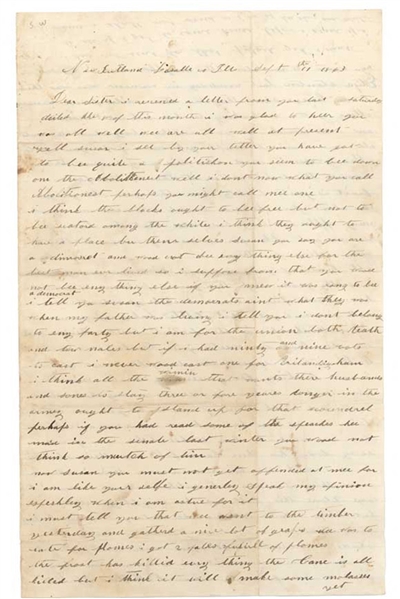 New Rutland Lasalle co Ill Sept 11th 1863
Dear Sister i received a letter from you last saturday
dated the of the month i was glad to hear you
was all well wee are all well at present
well susan i see by your letter you have got
to bee quite a politishon you seem to bee down
one the Abolitionest well i dont now what you call
Abolitionest perhaps you might call mee one
i think the blacks ought to bee free but not to
bee seated among the white i think they ought to
have a place bu there selves susan you say you are
a dimocrat and wood not bee eny thing else for the
best man ever lived so i suppose from that you wood
not bee eny thing else if you knew it was rong to be
a democrat
i tell you susan the demcrats aint what they was
when my father was living i tell you i dont belong
to eny party but i am for the union both teath
and tow nales but if i had ninty and nine vots
to cast i never wood cast one for Vilandigham
i think all the wimin that wants there husbands
and sons to stay three or four yeares longer in the
army ought to stand up for that scoundrel
perhaps if you had read some of the speaches hee
made in the senate last winter you wood not
think so mutch of him
now susan you must not get offended at mee for
i am like your selfe i generley speak my opinion
espeshley when i am active for it
i must tell you that wee went to the timber
yesterday and gatherd a nice lot of graps wee was to
late for plomes i got 2 pales full of plomes
the frost has killed evry thing the Cane is all
killed but i think it will make some molasses
yet